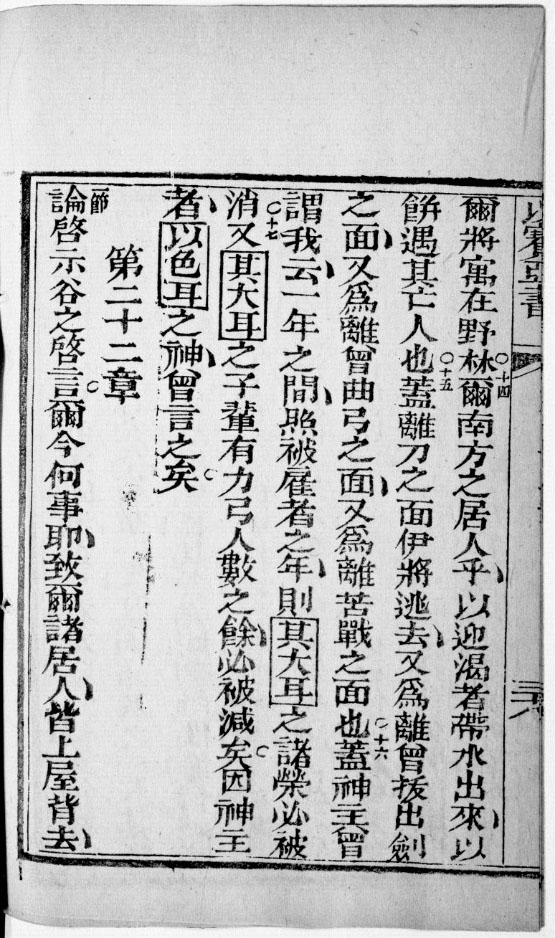 以賽亞書
爾將寓在野林○十四爾南方之居人乎以迎渴者帶水出來以
餅遇其亡人也○十五蓋離刀之面伊將逃去又為離曾拔出劍
之面又爲離曾曲弓之面又爲離苦戰之面也○十六蓋神主曾
謂我云一年之間照被雇者之年則其大耳之諸榮必被
消又○十七其大耳之子輩有力弓人數之餘必被減矣因神主
者以色耳之神曾言之矣
第二十二章
一節論啓示谷之啓言爾今何事耶致爾諸居人皆上屋背去